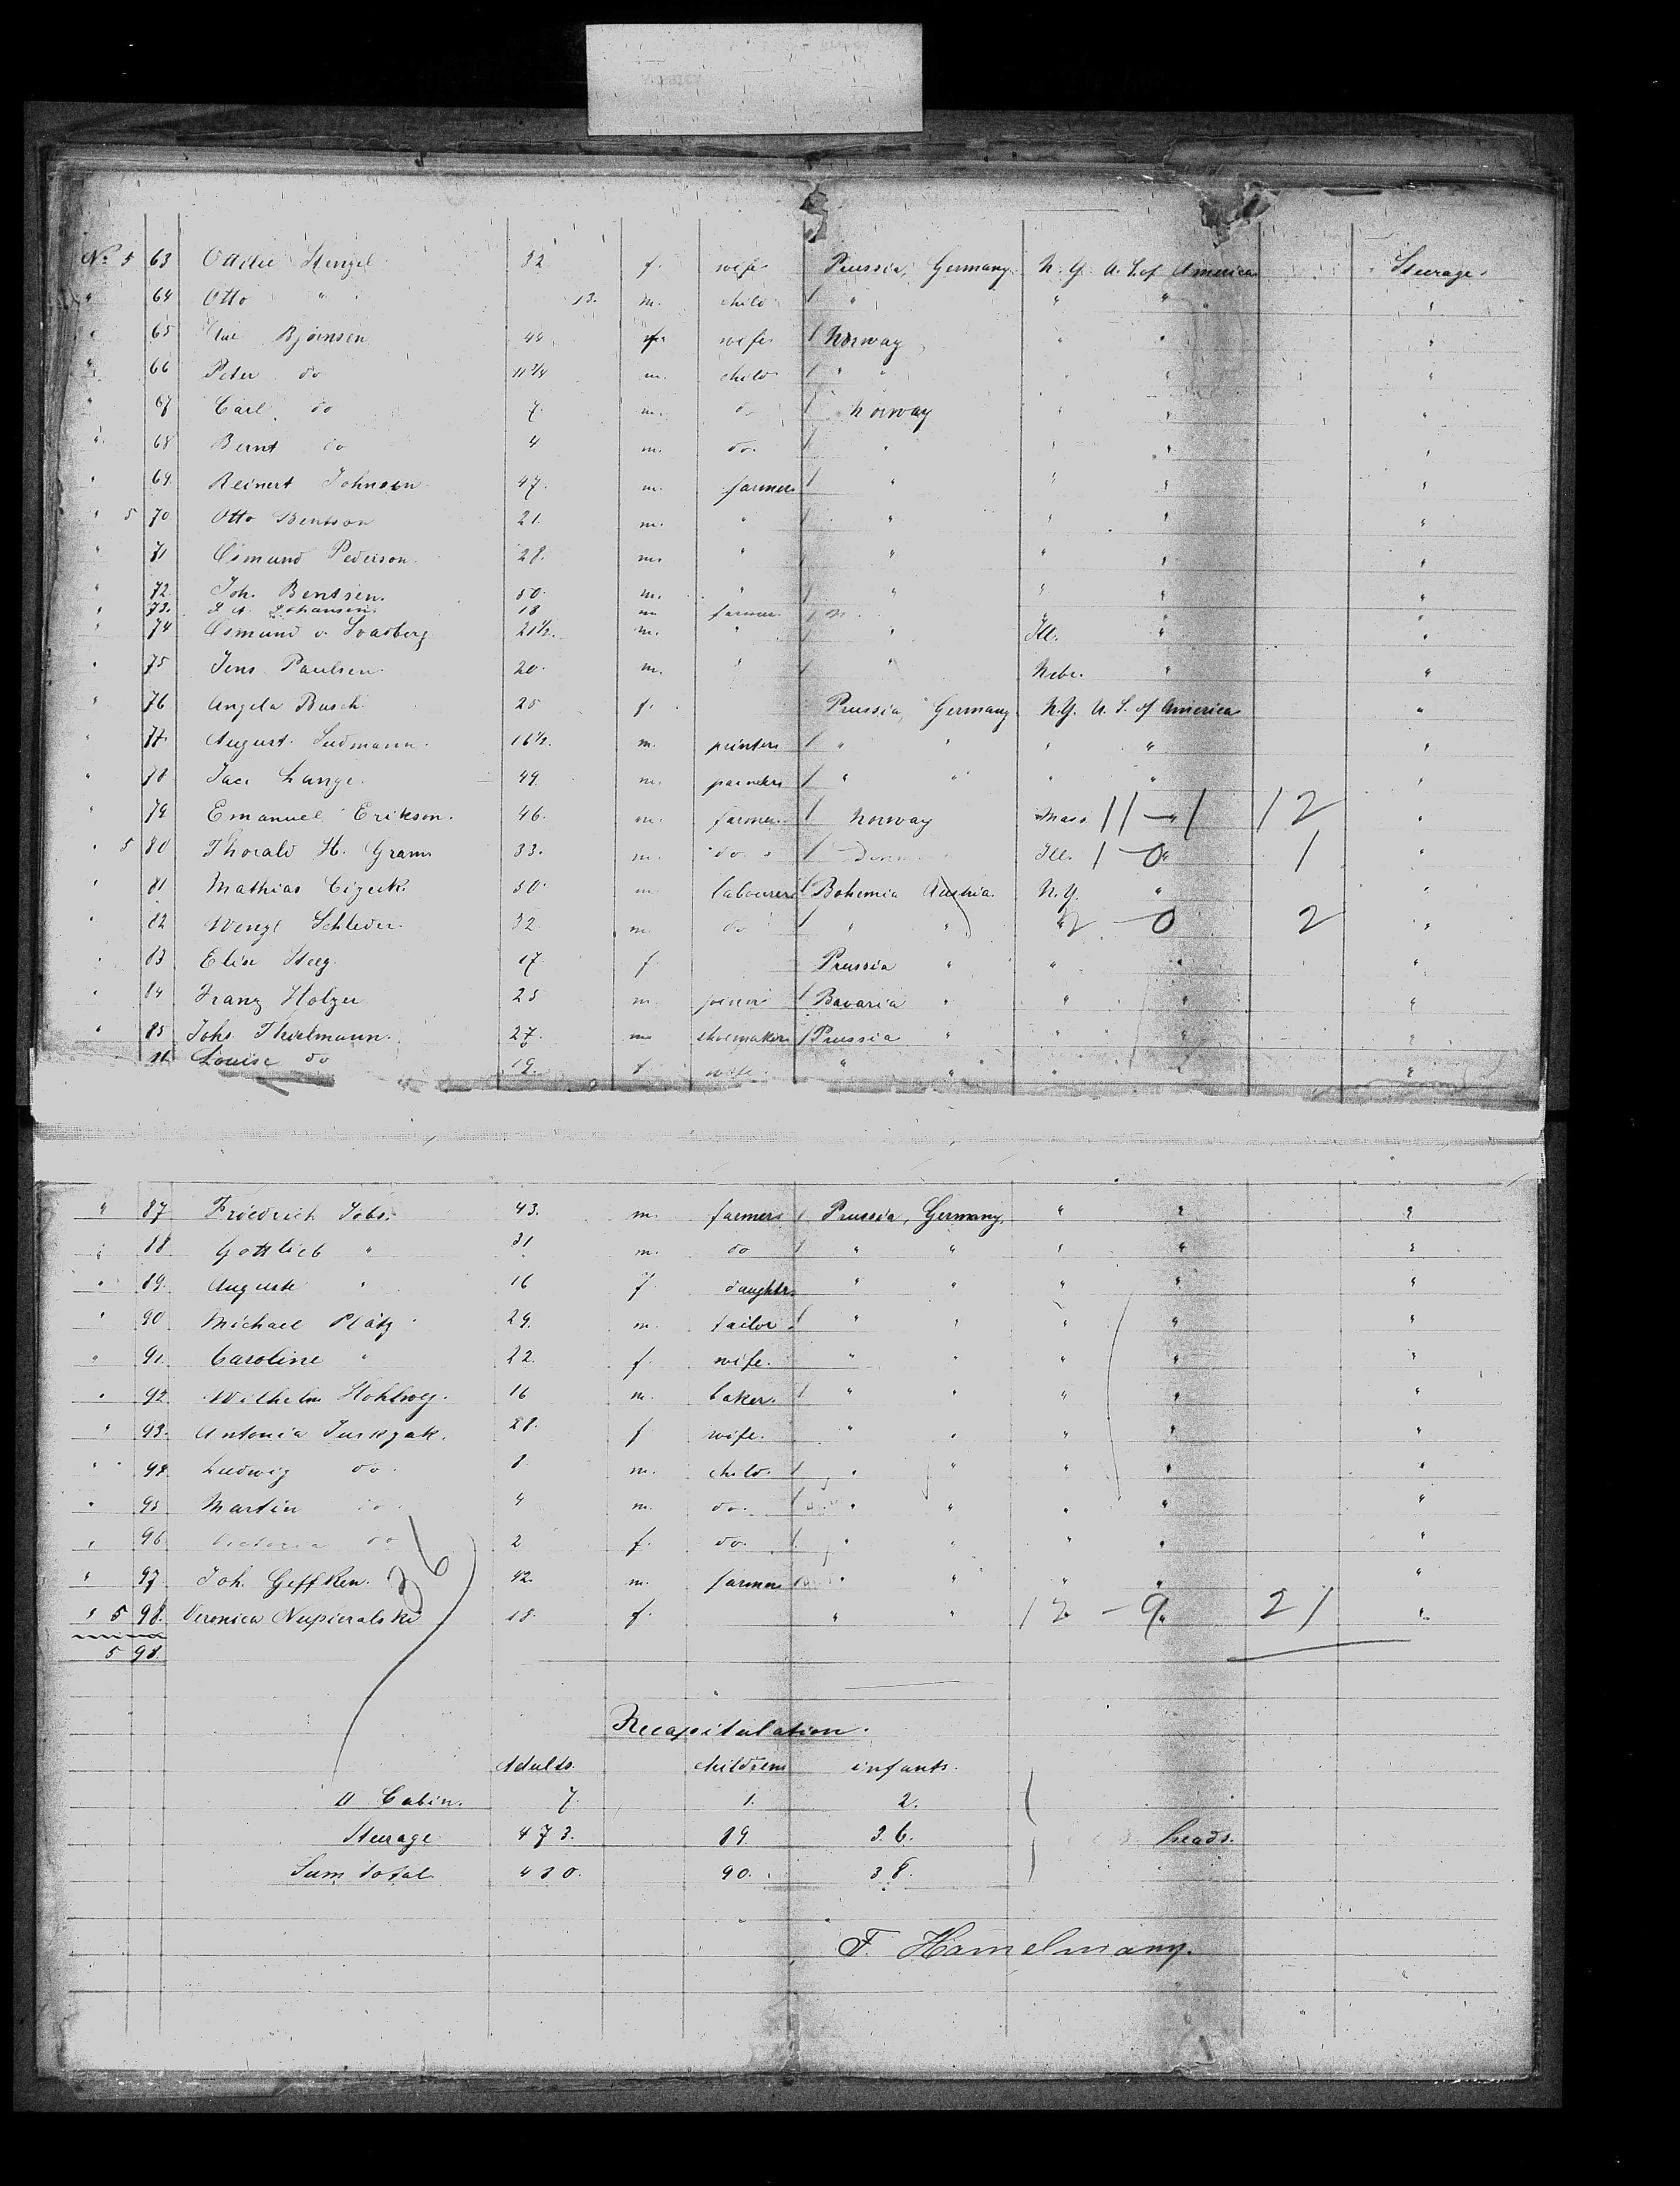 No 5 63 Ottilie Stengel 32 f. wife Prussia, Germany. N.Y. U.S. of America Steerage.
" 64 Otto " 13. m. child " " " "
" 65 Bjørnsen 44. f. wife Norway " " "
" 66 Peter do 11 3/4 m. child " " " " "
" 67 Carl do 7. m. do Norway " " "
" 68 Bernt do 4 m. do. " " " "
" 69 Reinert Johnsen 47. m. farmer " " " "
" 5 70 Otto Bentson 21. m. " " " " "
" 71 Osmund Pederson. 28. m. " " " " "
" 72. Joh. Bentsen. 50. m. " " " " "
" 73. Johansen. 18 m farmer "
" 74 Osmund v. Svadberg 21 1/2. m. " " Ill. " "
" 75 Jens Paulsen 20. m. " " Nebr. " "
" 76 Angela Busch. 25 f. Prussia, Germany. N.Y. U.S. of America "
" 77. August. Sudmann. 16 1/2. m. printer " " " " "
" 78 Lange. 49. m. " " " " "
" 79 Emanuel Erikson. 46. m. farmer. Norway Mass. 11 - 1 12 "
" 5 80 Thorald H. Gram 33. m. do. Ill. 1 - 0 1 "
" 81 Mathias 50. m. labourer Bohemia Austria. N.Y. " "
" 82 Wenzl Schleder. 32. m. do " " 2 - 0 2 "
" 83 Elise Steeg. 17. f. Prussia " " " "
" 84 Franz Holzer 25 m. joiner Bavaria " " " "
" 85 Johs Thielmann. 27. m shoemaker Prussia " " " "
86 Louise do 19. f wife. " " " " "
" 87 Friedrich Jobs. 43. m. farmer Prussia, Germany. " " "
" 88 Gottlieb " 31 m. do " " " " "
" 89. Auguste " 16 f. daughter " " " " "
" 90 Michael Plätz 29. m. tailor " " " " "
" 91. Caroline " 22. f. wife. " " " " "
" 92. Wilhelm Hohlweg. 16 m. baker. " " " " "
" 93. Antonia 28. f wife. " " " " "
" 94. Ludwig do. 8. m. child. " " " " "
" 95 Martin do. 4 m. do. " " " " "
" 96 Victoria do 2 f. do. " " " " "
" 97 Joh. Geffken. 42. m. farmer " " " " "
" 5 98. Veronica Nupieralski 18. f. " " 12 - 9 21 "
36
5 98.
Recapitulation.
Adults. children infants.
II Cabin. 7. 1. 2.
Steerage 473. 89. 36. heads.
Sum total 480. 90. 38.
F. Hamelmann.